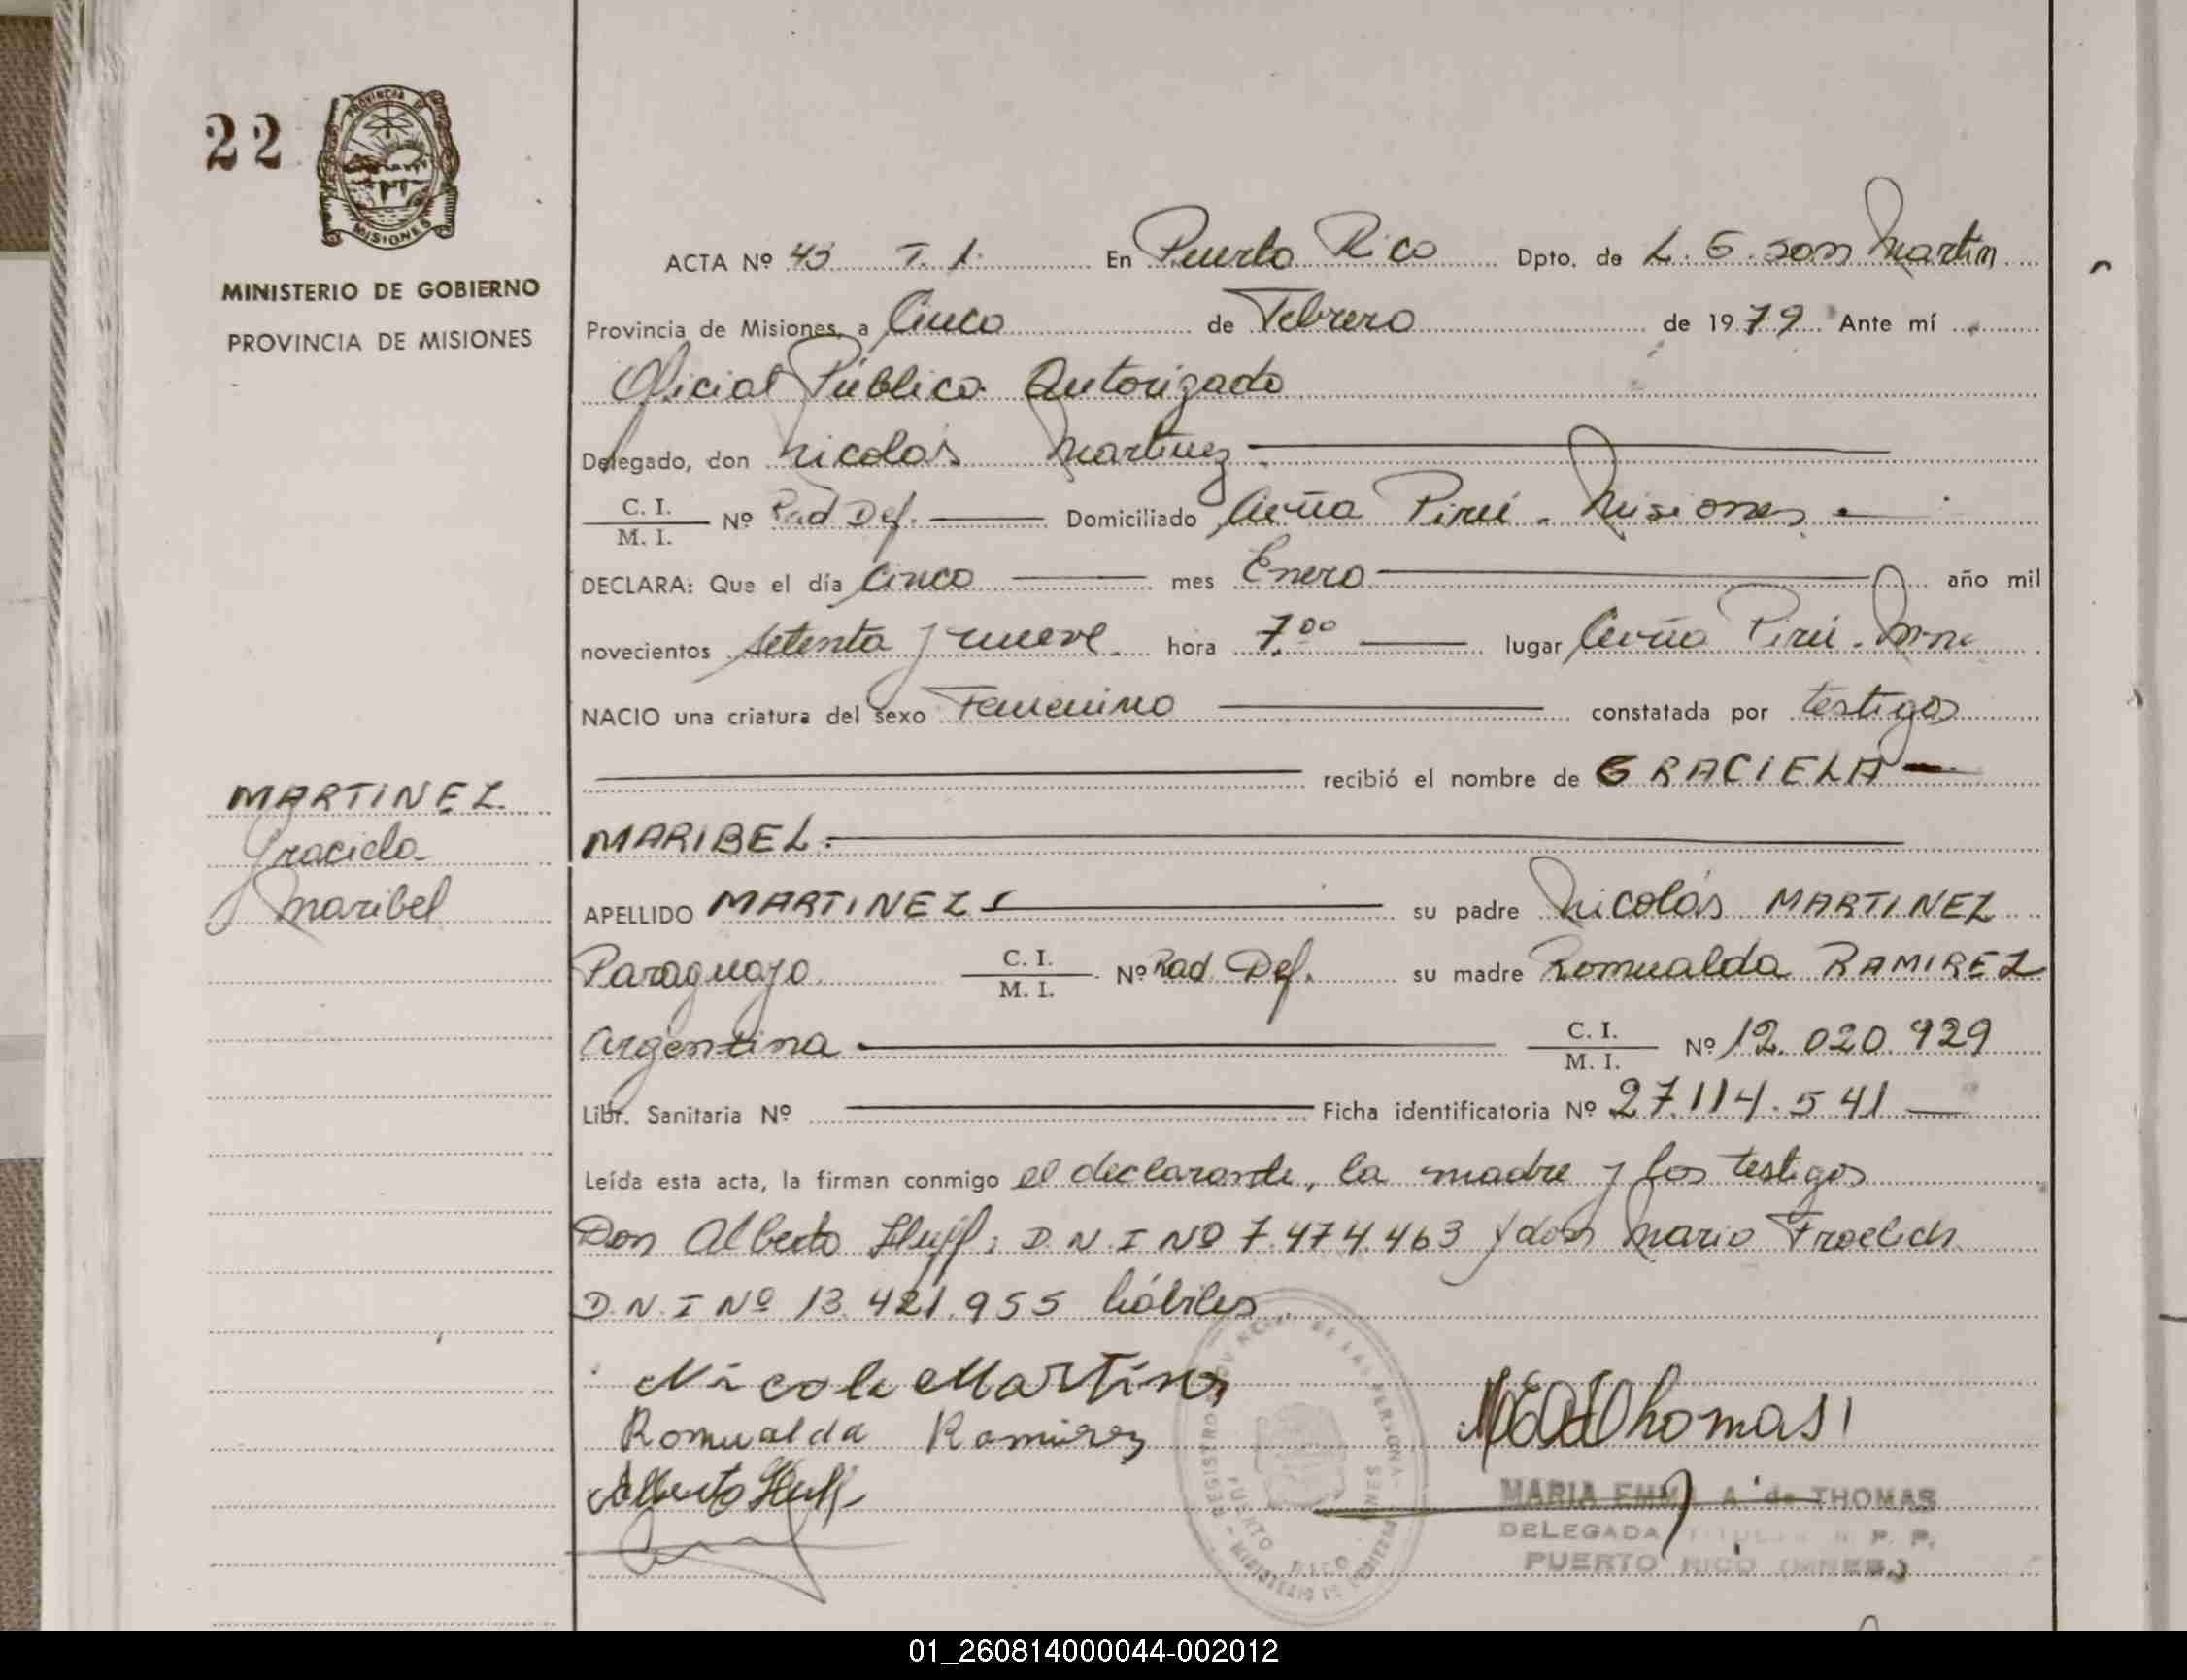 22
PROVINCIA D
MISIONES
MINISTERIO DE GOBIERNO
PROVINCIA DE MISIONES
MARTINEZ.
Graciela
Maribel
ACTA Nº 43 T. 1. En Puerto Rico Dpto. de L. G. San Martin
Provincia de Misiones, a Cinco de Febrero de 1979 Ante mí
Oficial Público Autorizado
Delegado, don Nicolás Martinez
C. I. / M. I. Nº Rad Def. Domiciliado Cuña Pirú - Misiones
DECLARA: Que el día Cinco mes Enero año mil
novecientos setenta y nueve hora 7.00 lugar Cuña Pirú - Mnes
NACIO una criatura del sexo Femenino constatada por testigos
recibió el nombre de GRACIELA
MARIBEL.
APELLIDO MARTINEZ su padre Nicolás MARTINEZ
Paraguayo C. I. / M. I. Nº Rad Def. su madre Romualda RAMIREZ
Argentina C. I. / M. I. Nº 12.020.929
Libr. Sanitaria Nº Ficha identificatoria Nº 27.114.541
Leída esta acta, la firman conmigo el declarante, la madre y los testigos
Don Alberto D.N.I Nº 7.474.463 y don Mario Froelich
D.N.I Nº 13.421.955 hábiles
Nicola Martinez
Romualda Ramirez
Alberto
Thomas
MARIA EMMA A de THOMAS
DELEGADA TITULAR R. P. P.
PUERTO RICO (MNES.)
REGISTRO DE LAS PERSONAS
PUERTO RICO
01_260814000044-002012